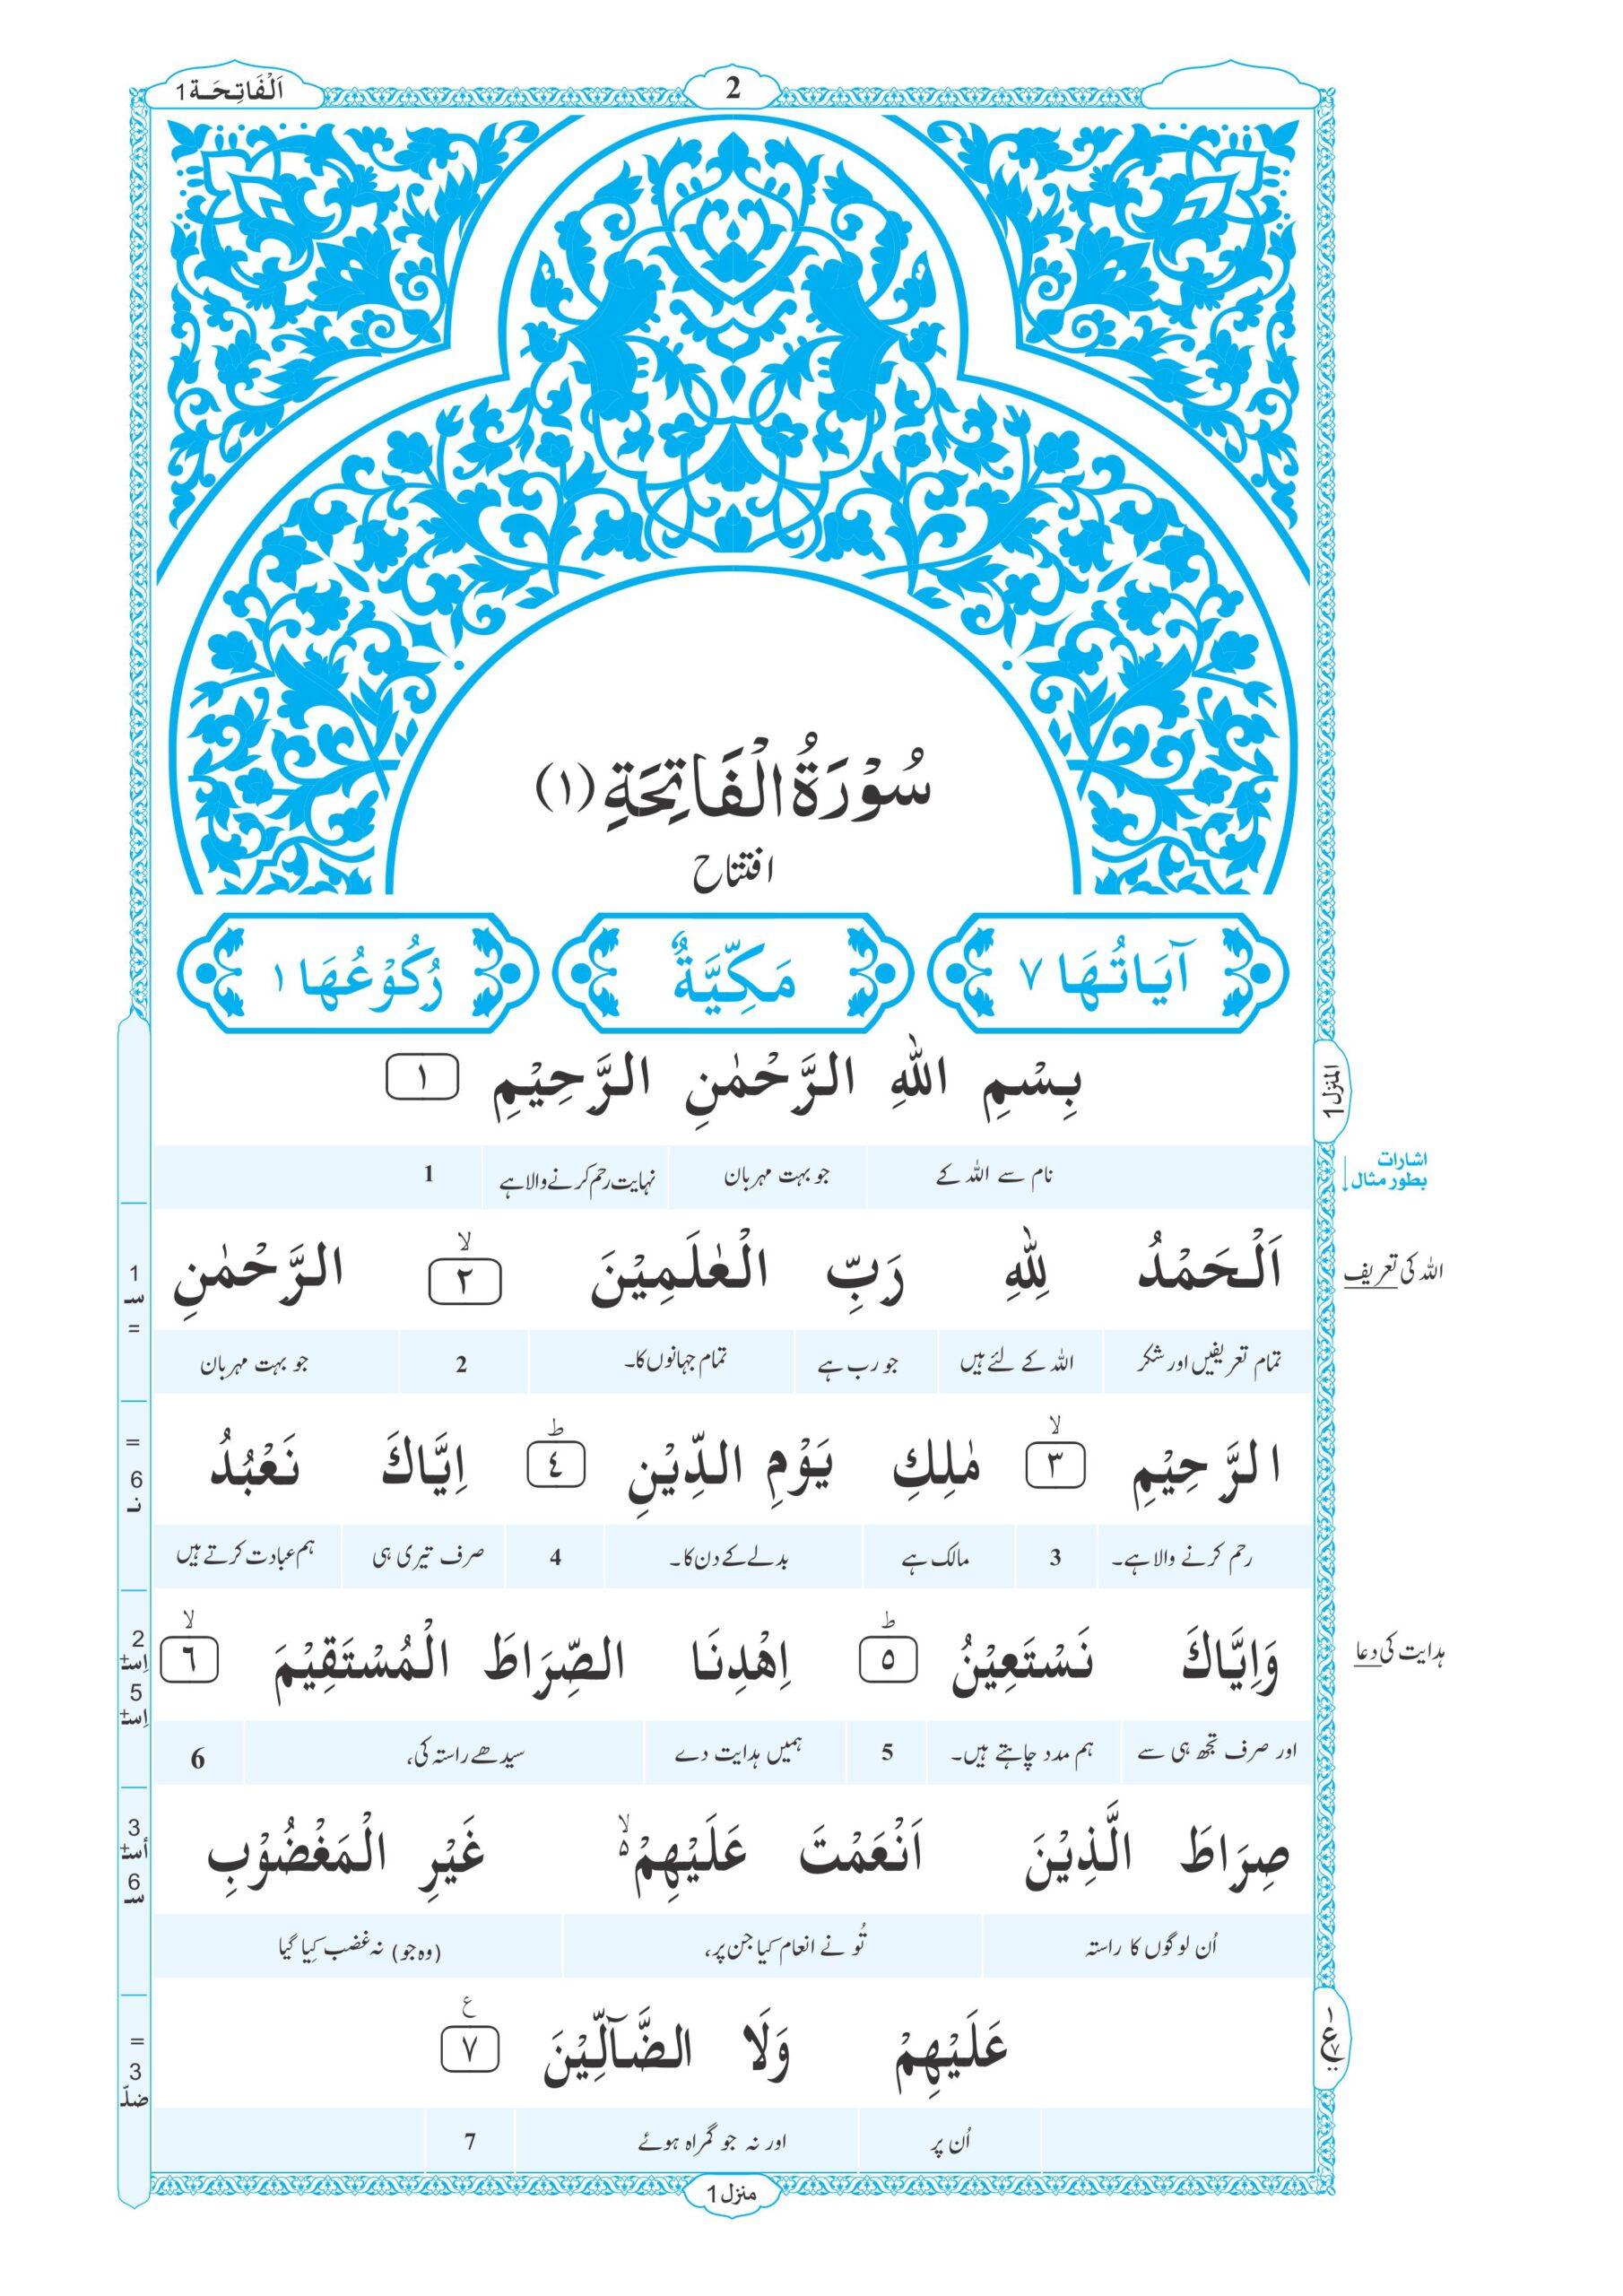 اَلْفَاتِحَة 1
2
سُوْرَةُ الْفَاتِحَةِ (١)
افتتاح
آيَاتُهَا ٧ مَكِّيَّةٌ رُكُوْعُهَا ١
المنزل 1
بِسْمِ اللّٰهِ الرَّحْمٰنِ الرَّحِيْمِ ١
نام سے اللہ کے جو بہت مہربان نہایت رحم کرنے والا ہے 1
اشارات
بطور مثال
اَلْحَمْدُ لِلّٰهِ رَبِّ الْعٰلَمِيْنَ ۙ ٢ الرَّحْمٰنِ
اللہ کی تعریف
1 سـ =
تمام تعریفیں اور شکر اللہ کے لئے ہیں جو رب ہے تمام جہانوں کا۔ 2 جو بہت مہربان
الرَّحِيْمِ ۙ ٣ مٰلِكِ يَوْمِ الدِّيْنِ ؕ ٤ اِيَّاكَ نَعْبُدُ
= 6 نـ
رحم کرنے والا ہے۔ 3 مالک ہے بدلے کے دن کا۔ 4 صرف تیری ہی ہم عبادت کرتے ہیں
وَاِيَّاكَ نَسْتَعِيْنُ ؕ ٥ اِهْدِنَا الصِّرَاطَ الْمُسْتَقِيْمَ ۙ ٦
ہدایت کی دعا
2 اِسـ+ 5 اِسـ+
اور صرف تجھ ہی سے ہم مدد چاہتے ہیں۔ 5 ہمیں ہدایت دے سیدھے راستہ کی، 6
صِرَاطَ الَّذِيْنَ اَنْعَمْتَ عَلَيْهِمْ ۙ۬ غَيْرِ الْمَغْضُوْبِ
3 أسـ+ 6 سـ
اُن لوگوں کا راستہ تُو نے انعام کیا جن پر، (وہ جو) نہ غضب کِیا گیا
عَلَيْهِمْ وَلَا الضَّآلِّيْنَ ٧ ع
= 3 ضلّ
اُن پر اور نہ جو گمراہ ہوئے 7
منزل 1